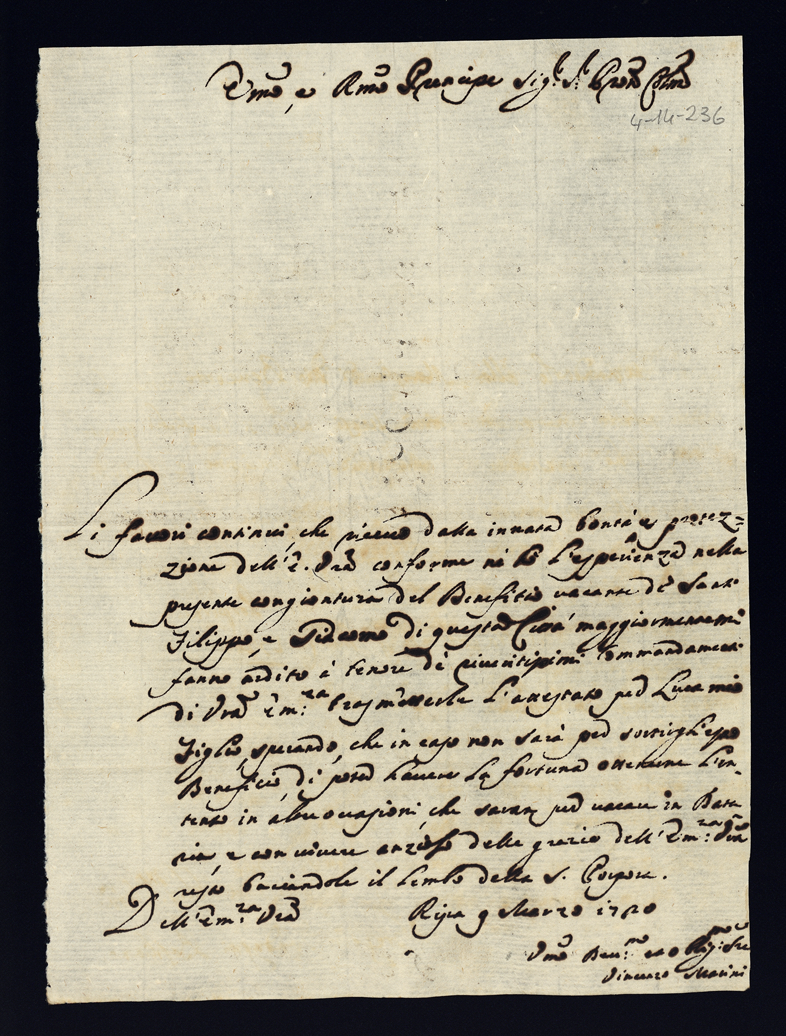 Em.o, e Rm.o Prencipe Sig.r S.r Pron Colmo
4-14-236
Li favori continui, che ricevo dalla innata bontà e protez=
zione dell'E. Vra conforme nè hò l'esperienza nella
presente congiontura del Benefitio vacante dè Santi
Filippo, e Giacomo di questa Città maggiormente mi
fanno ardito à tenore dè riveritissimi commandamenti
di Vra Em.za trasmetterle l'attestato per Luca mio
Figlio, sperando, che in caso non sarà per sortirgli esso
Beneficio, di poter havere la fortuna ottenerne l'in-
tento in altre occasioni, che saran per vacare in
e con vivere delle grazie dell'Em.za Vra
resto baciandole il lembo della S. Porpora.
Dell'Em.za Vra Ripa 9 Marzo 1720
Vmo Dev.mo ed Obligmo Sre
Vincenzo Marini